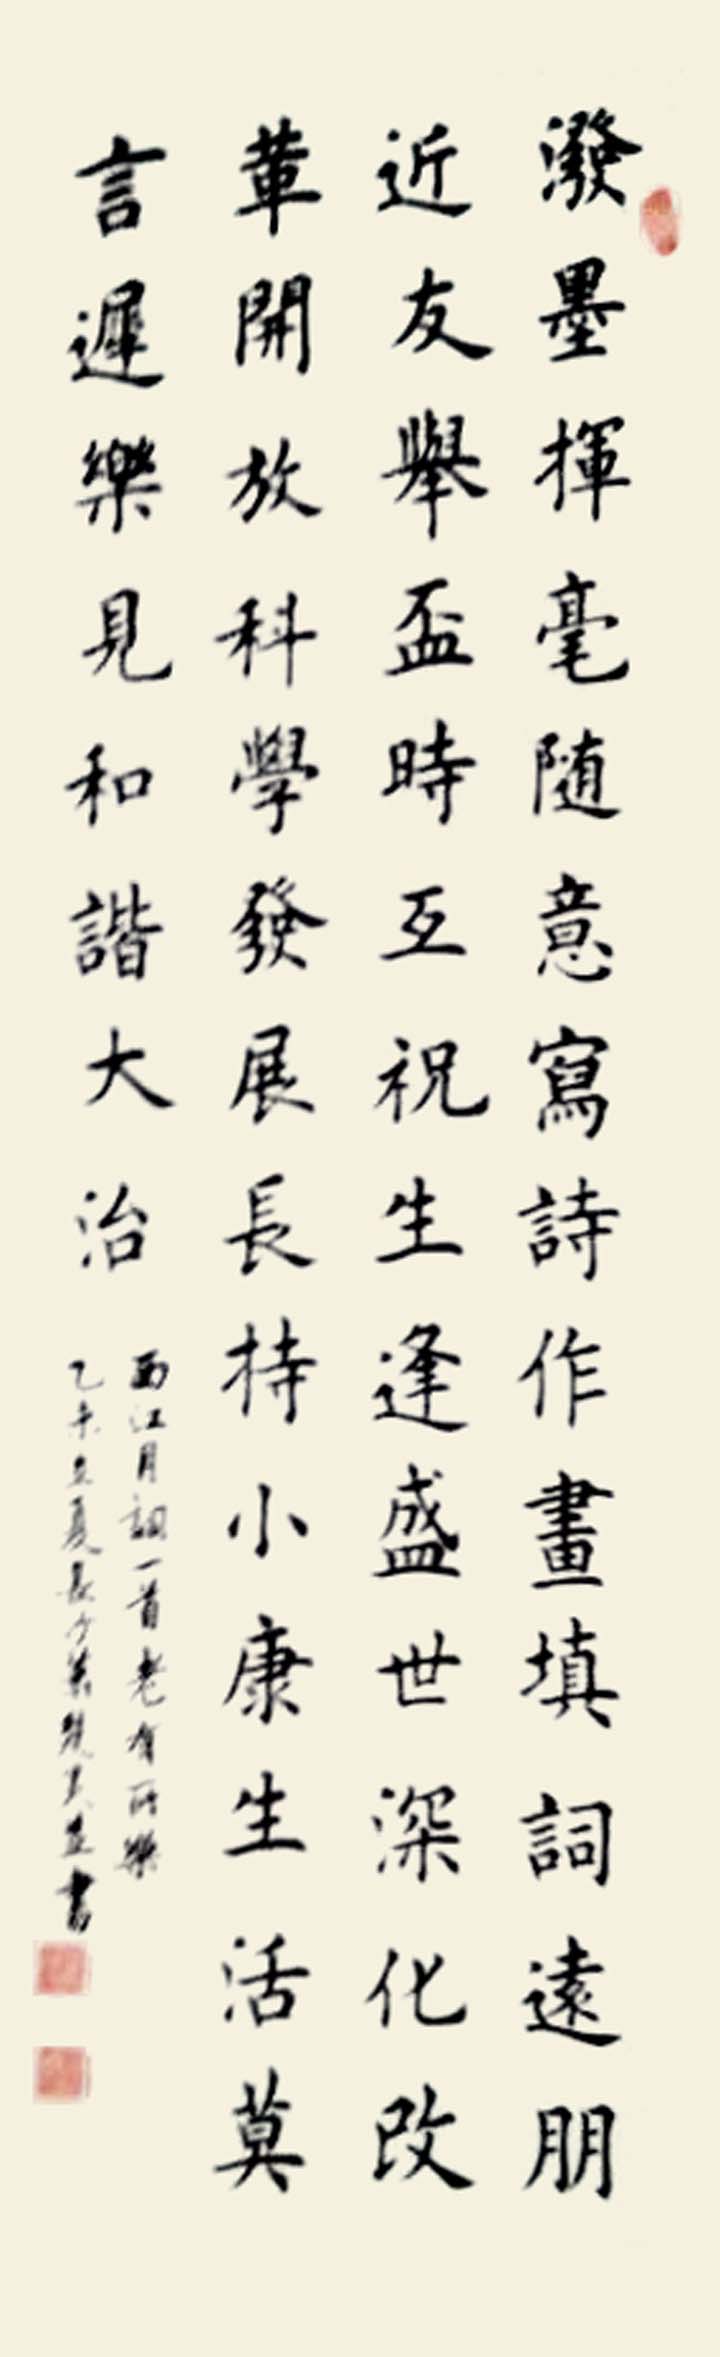 潑墨揮毫随意寫詩作畫填詞遠朋
近友舉盃時互祝生逢盛世深化改
革開放科學發展長持小康生活莫
言遲樂見和諧大治
西江月詞一首老有所樂
乙未立夏長沙葉先其並書